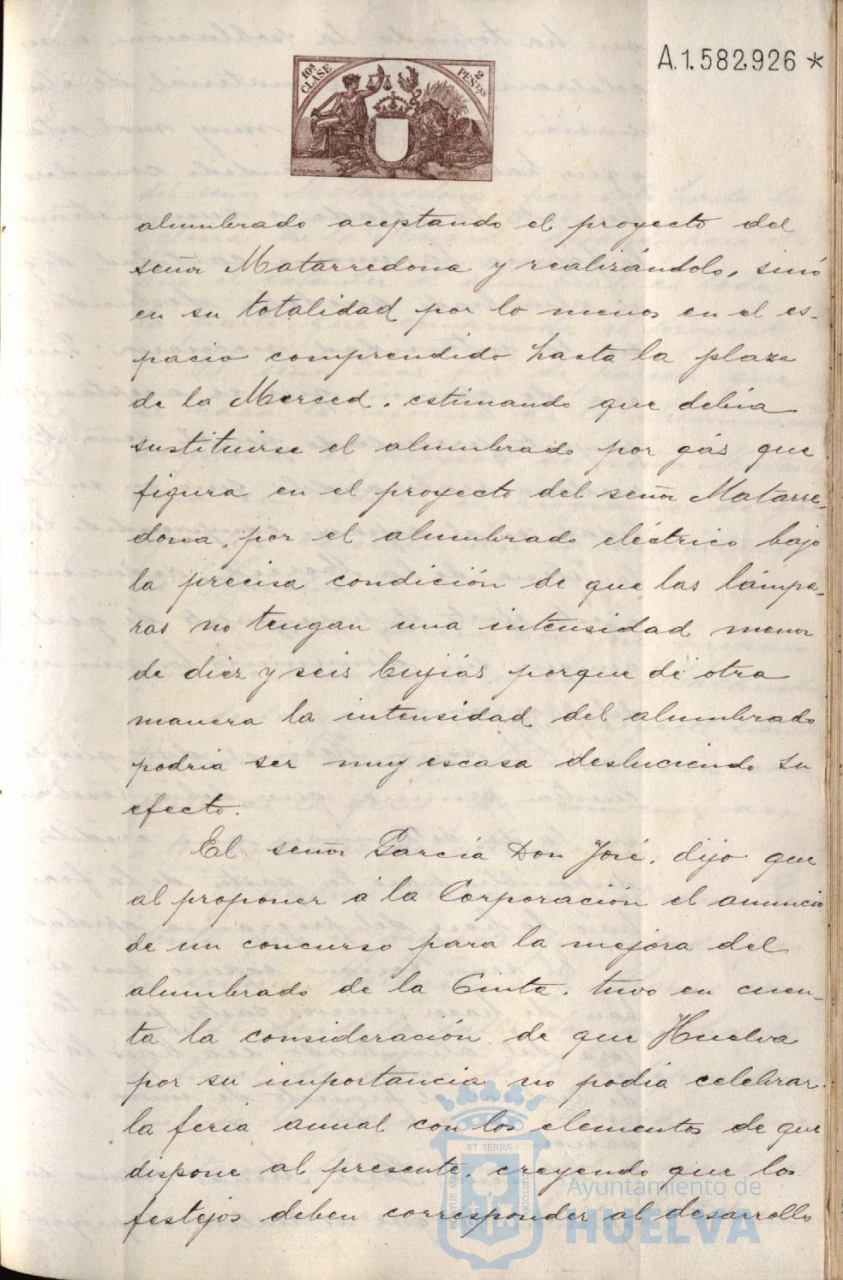 10ª CLASE
2 PESTAS
A.1.582.926 *
alumbrado aceptando el proyecto del
señor Matarredona y realizándolo, sinó
en su totalidad por lo menos en el es-
pacio comprendido hasta la plaza
de la Merced, estimando que debia
sustituirse el alumbrado por gás que
figura en el proyecto del señor Matarre-
dona, por el alumbrado eléctrico bajo
la precisa condición de que las lámpa-
ras no tengan una intensidad menor
de diez y seis bujias porque de otra
manera la intensidad del alumbrado
podria ser muy escasa desluciendo su
efecto.
El señor Garcia Don José, dijo que
al proponer á la Corporación el anuncio
de un concurso para la mejora del
alumbrado de la Cinta, tuvo en cuen-
ta la consideración de que Huelva
por su importancia no podia celebrar
la feria anual con los elementos de que
dispone al presente, creyendo que los
festejos deben corresponder al desarrollo
ET TERRA
Ayuntamiento de
HUELVA